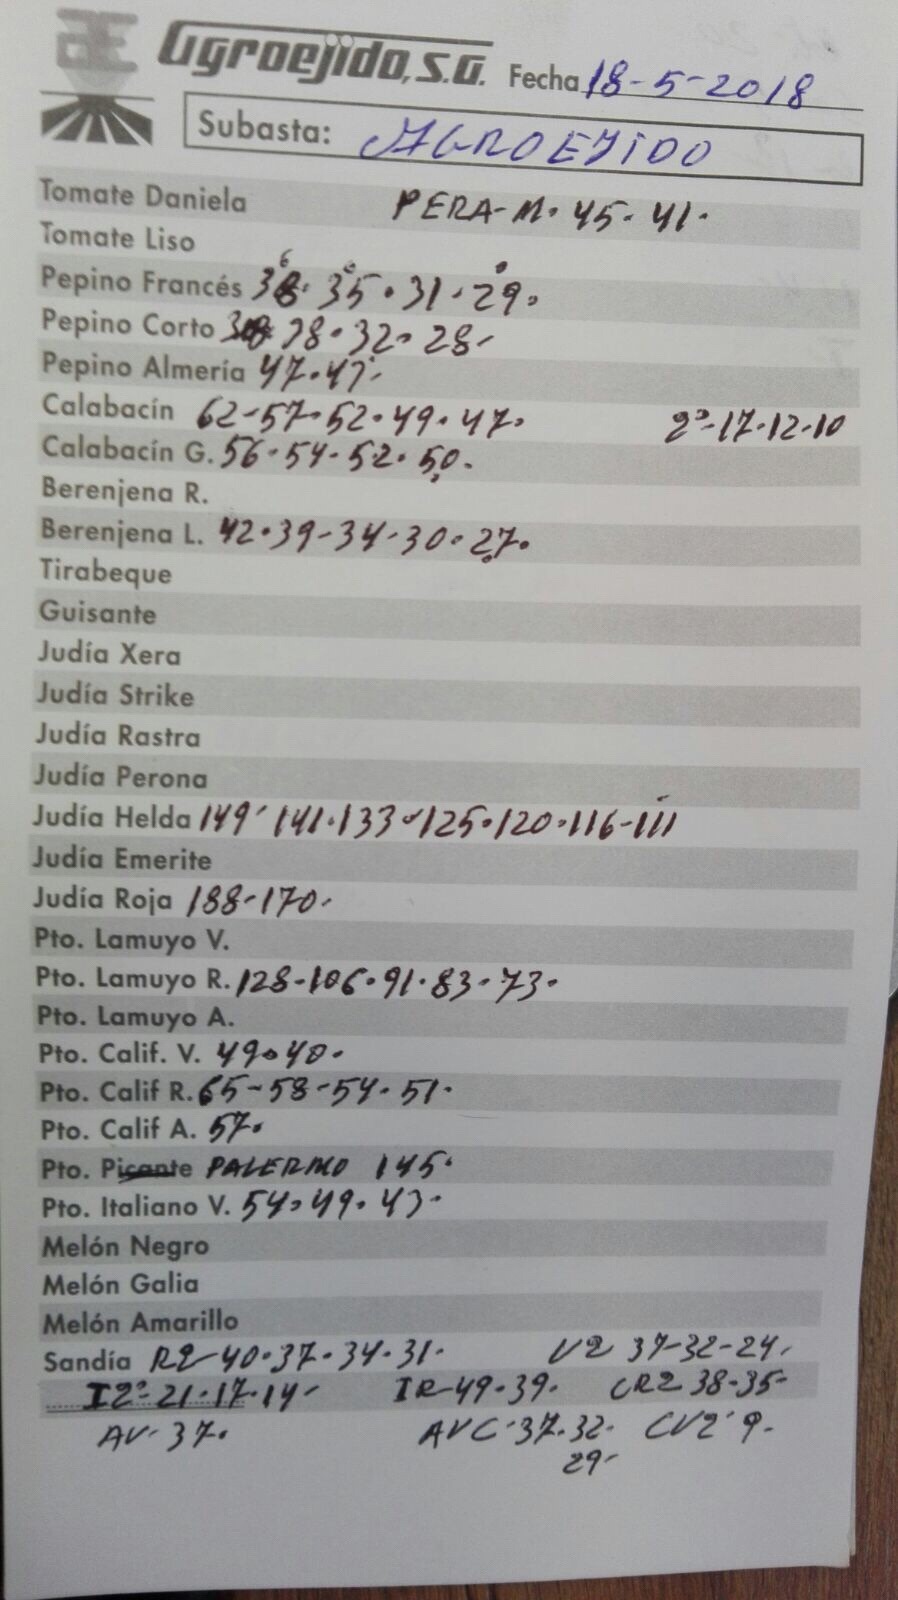 Agroejido, S.A. Fecha 18-5-2018
Subasta: AGROEJIDO
Tomate Daniela PERA-M. 45. 41.
Tomate Liso
Pepino Francés 36. 35. 31. 29.
Pepino Corto 38. 32. 28-
Pepino Almería 47. 43-
Calabacín 62-57. 52. 49. 47. 2ª-17. 12. 10
Calabacín G. 56. 54- 52. 50.
Berenjena R.
Berenjena L. 42. 39-34-30. 27.
Tirabeque
Guisante
Judía Xera
Judía Strike
Judía Rastra
Judía Perona
Judía Helda 149- 141. 133. 125. 120. 116-111
Judía Emerite
Judía Roja 188-170.
Pto. Lamuyo V.
Pto. Lamuyo R. 128-106. 91. 83. 73.
Pto. Lamuyo A.
Pto. Calif. V. 49. 40.
Pto. Calif R. 65-58-54. 51.
Pto. Calif A. 57.
Pto. Picante PALERMO 145.
Pto. Italiano V. 54. 49. 43.
Melón Negro
Melón Galia
Melón Amarillo
Sandía R2-40. 37. 34. 31. V2 37-32-24.
I2ª-21. 17. 14- IR-49. 39. CR2 38-35-
AV- 37. AVC-37. 32- CV2- 9.
29-